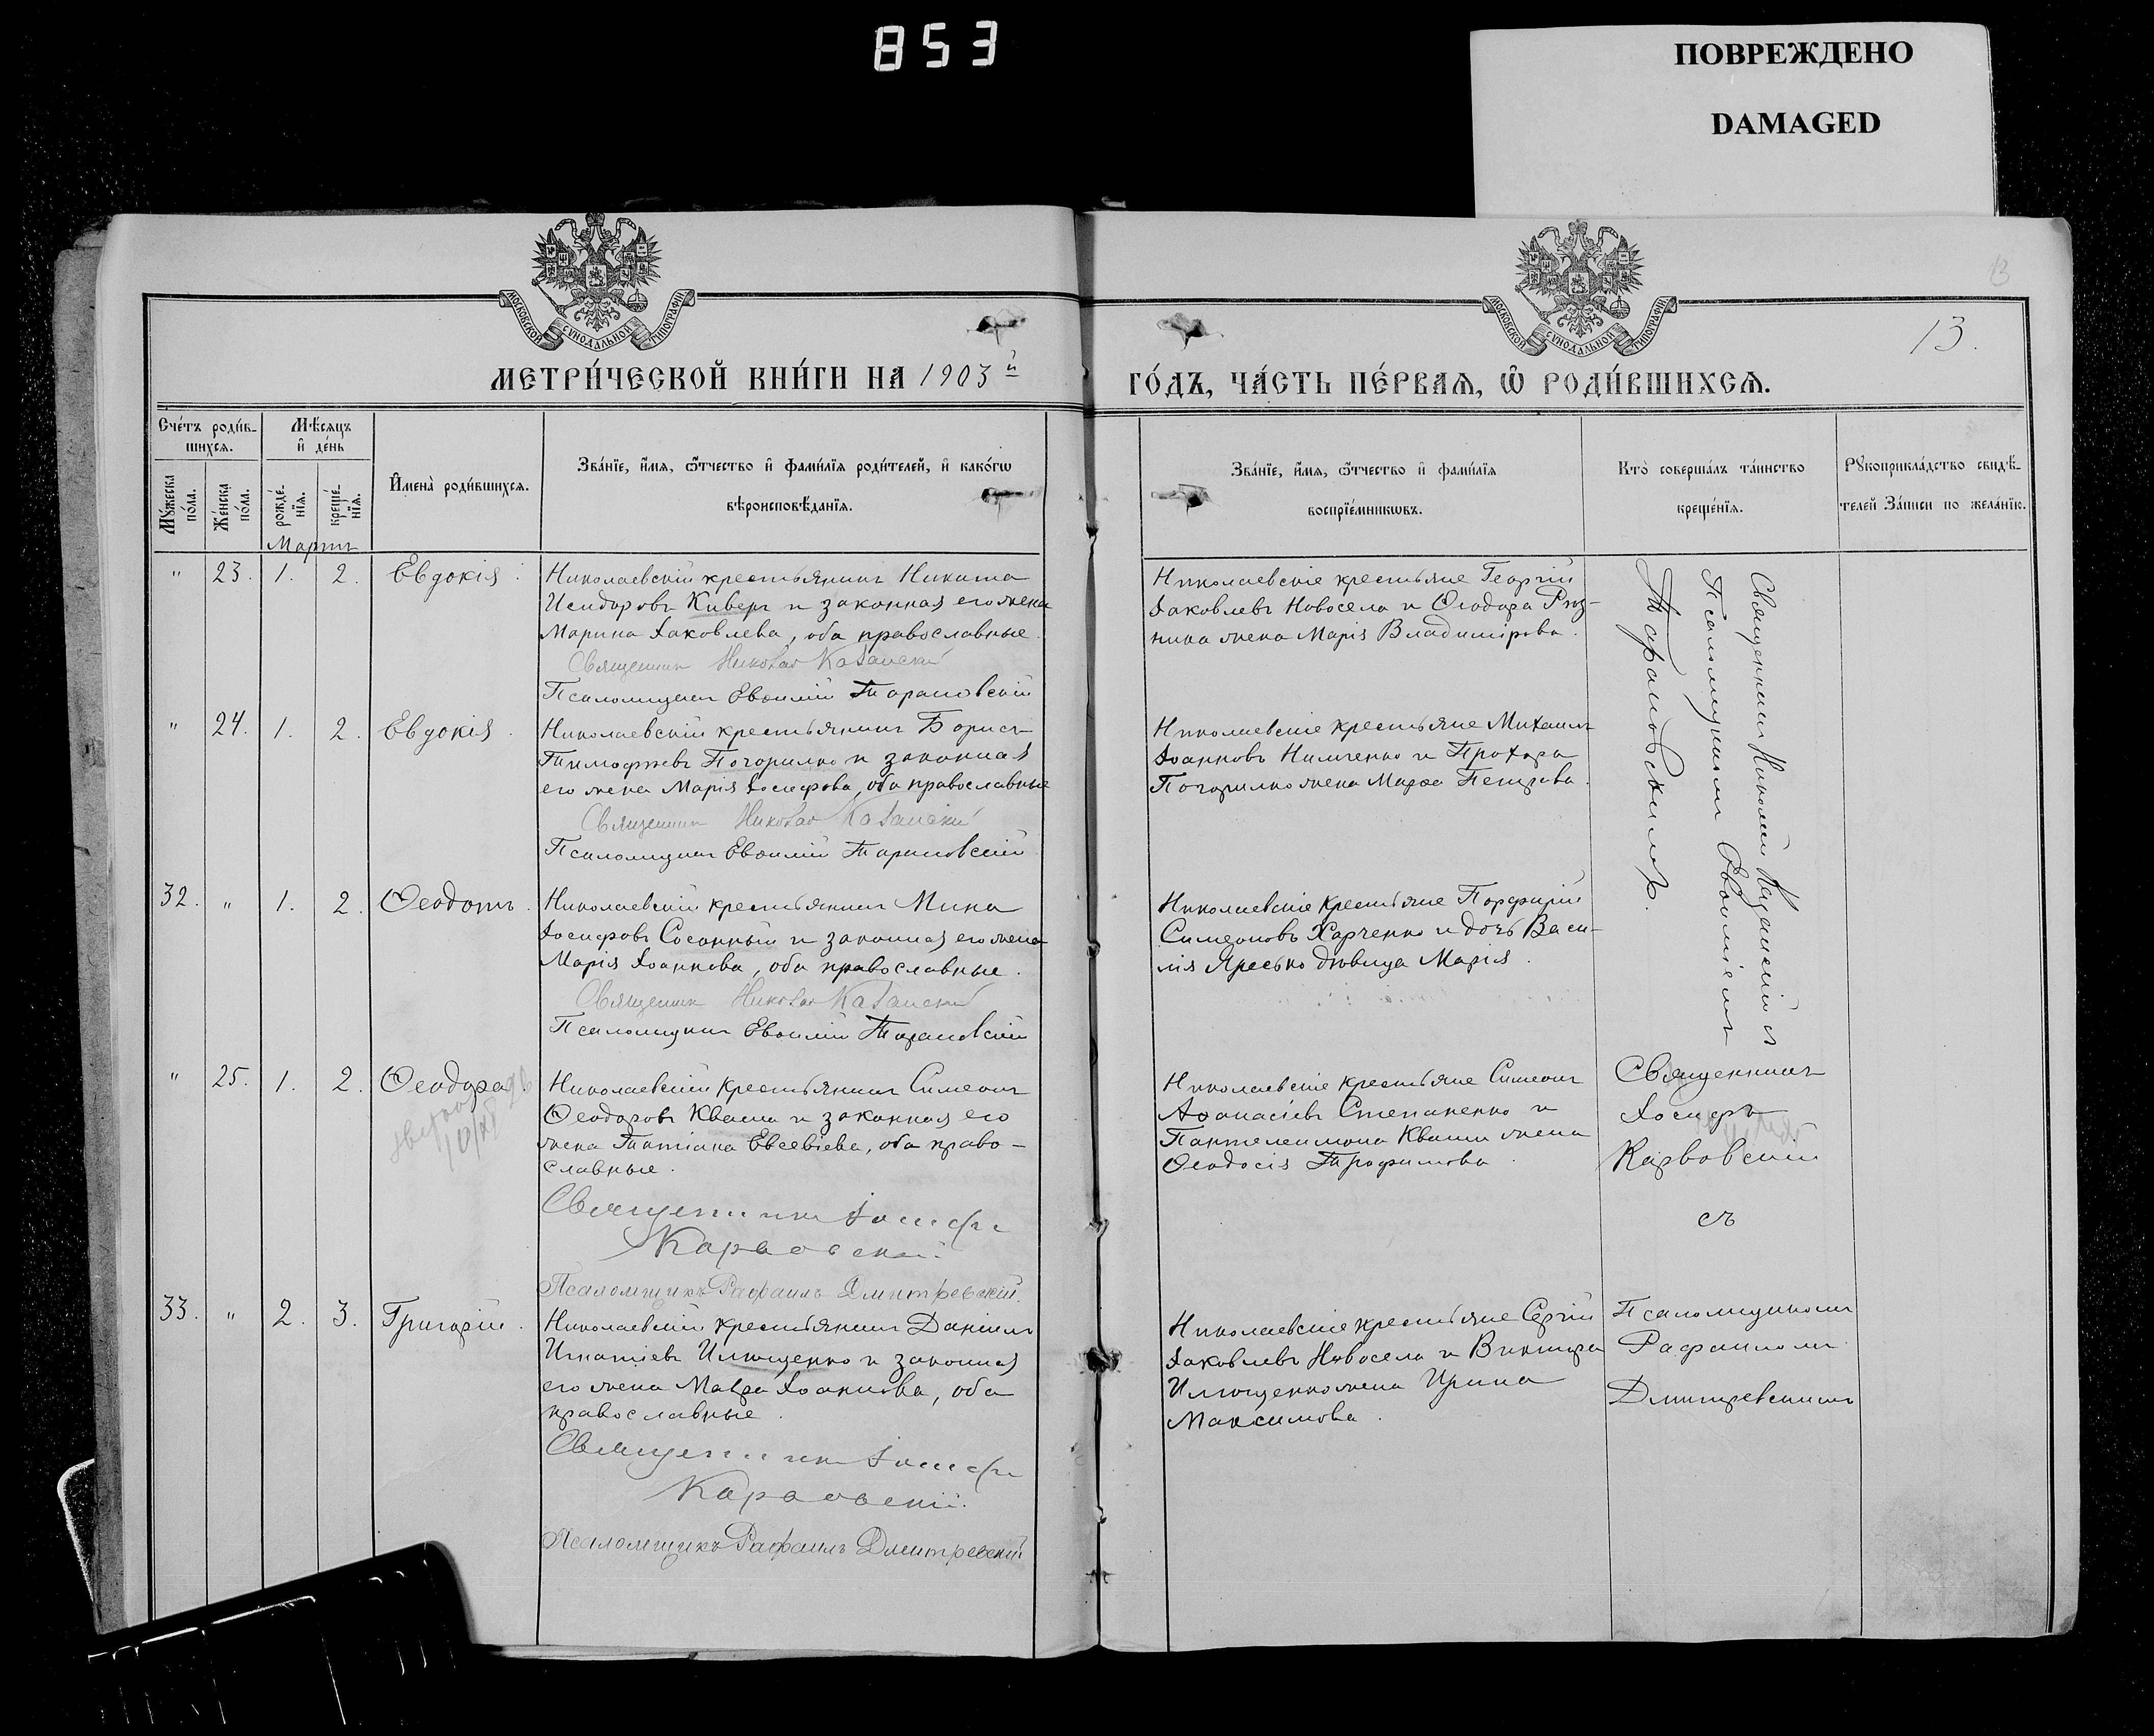 853
ПОВРЕЖДЕНО
DAMAGED
МОСКОВСКОЙ СѴНОДАЛЬНОЙ ТИПОГРАФІИ
МОСКОВСКОЙ СѴНОДАЛЬНОЙ ТИПОГРАФІИ
13
13.
МЕТРИ́ЧЕСКОЙ КНИ́ГИ НА 1903й
ГО́ДЪ, ЧА́СТЬ ПЕ́РВАѦ, Ѡ҆ РОДИ́ВШИХСѦ.
Сче́тъ роди́в-
шихсѧ.
Мꙋ́жеска по́ла.
Же́нска по́ла.
Мѣ́сѧцъ
и҆ де́нь
рожде́-нїѧ.
креще́-нїѧ.
И҆мена̀ роди́вшихсѧ.
Зва́нїе, и҆́мѧ, ѻ҆́тчество и҆ фами́лїѧ роди́телей, и҆ како́гѡ
вѣроисповѣ́данїѧ.
Зва́нїе, и҆́мѧ, ѻ҆́тчество и҆ фами́лїѧ
воспрїе́мникѡвъ.
Кто̀ соверша́лъ та́инство
креще́нїѧ.
Рꙋкоприкла́дство свидѣ́-
телей за́писи по жела́нїю.
Мартъ
" 23. 1. 2. Евдокія.
Николаевскій крестьянинъ Никита
Исидоровъ Киверъ и законная его жена
Марина Іаковлева, оба православные.
Священник Николай Казанскій
Псаломщикъ Евѳимій Тарановскій
Николаевскіе крестьяне Георгій
Іаковлевъ Новосела и Ѳеодора Рѣз-
ника жена Марія Владимірова.
Священникъ Николай Казанскій съ
Псаломщикомъ Евѳиміемъ
Тарановскимъ.
" 24. 1. 2. Евдокія.
Николаевскій крестьянинъ Борисъ
Тимофѣевъ Погорилко и законная
его жена Марія Іосифова, оба православные
Священник Николай Казанскій
Псаломщикъ Евѳимій Тарановскій
Николаевскіе крестьяне Михаилъ
Іоанновъ Нимченко и Прохора
Погорилко жена Марѳа Петрова.
32. " 1. 2. Ѳеодотъ.
Николаевскій крестьянинъ Мина
Іосифовъ Сосонный и законная его жена
Марія Іоаннова, оба православные.
Священник Николай Казанскій
Псаломщикъ Евѳимій Тарановскій
Николаевскіе крестьяне Порфирій
Симеоновъ Харченко и дочь Васи-
лія Яресько дѣвица Марія.
" 25. 1. 2. Ѳеодора.
Николаевскій крестьянинъ Симеонъ
Ѳеодоровъ Кваша и законная его
жена Татіана Евсевіева, оба право-
славные.
Священникъ Іосифъ
Карвовскій.
Псаломщикъ Рафаилъ Дмитревскій.
Николаевскіе крестьяне Симеонъ
Аѳанасіевъ Степаненко и
Пантелеимона Кваши жена
Ѳеодосія Трофимова.
Священникъ
Іосифъ
Карвовскій
съ
33. " 2. 3. Григорій.
Николаевскій крестьянинъ Даніилъ
Игнатіевъ Илющенко и законная
его жена Мавра Іоаннова, оба
православные.
Священникъ Іосифъ
Карвовскій.
Псаломщикъ Рафаилъ Дмитревскій
Николаевскіе крестьяне Сергій
Іаковлевъ Новосела и Виктора
Илющенко жена Ирина
Максимова.
Псаломщикомъ
Рафаиломъ
Дмитревскимъ